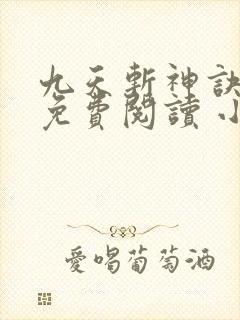 九天斬神訣
免費閱讀 小
愛喝葡萄酒